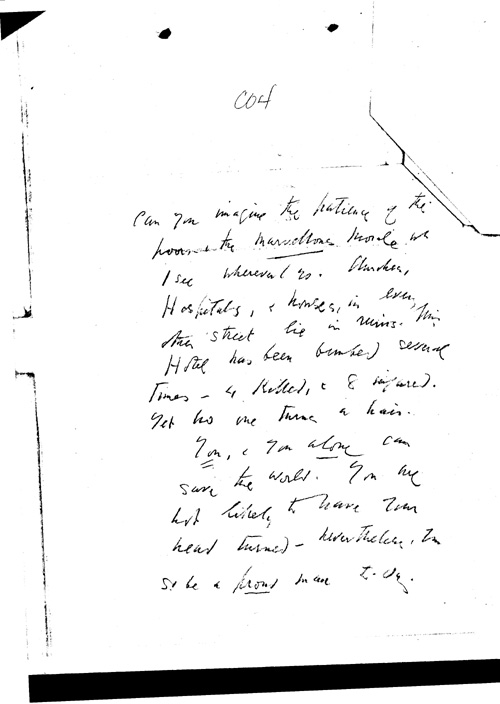 C04
Can you imagine the patience of the
poor & the marvellous morale wh
I see wherever I go. Churches,
Hospitals, & houses, in every
other street lie in ruins. This
Hotel has been bombed several
times - 4 killed, & 8 injured.
Yet no one turns a hair.
You, & you alone can
save the world. You are
not likely to have your
head turned - nevertheless, you
shd be a proud man to-day.